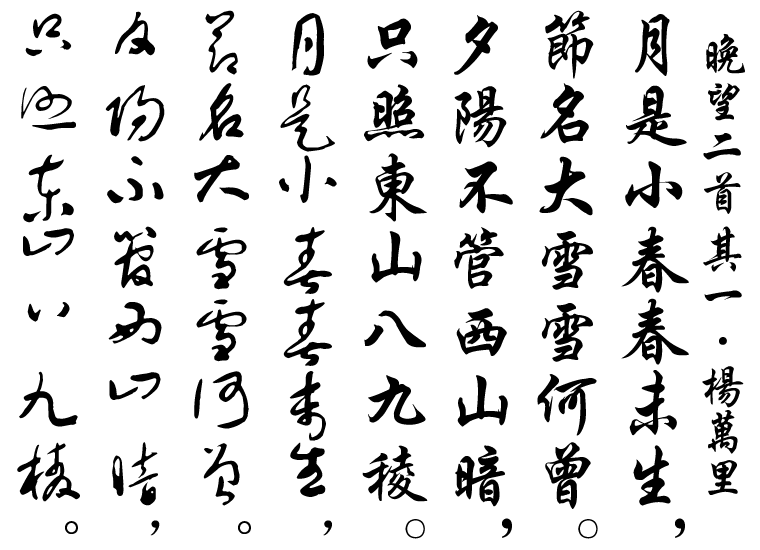 晚望二首其一·楊萬里
月是小春春未生，
節名大雪雪何曾。
夕陽不管西山暗，
只照東山八九稜。
月是小春春未生，
節名大雪雪何曾。
夕陽不管西山暗，
只照東山八九棱。